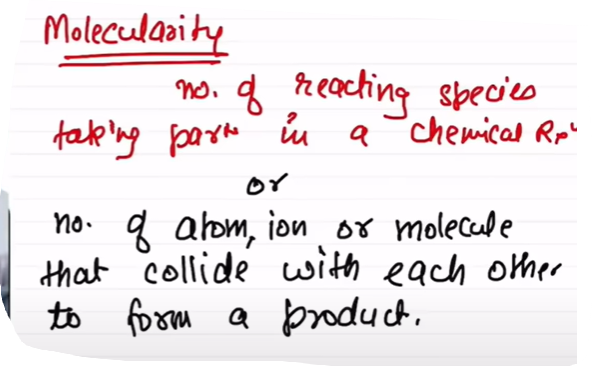 Molecularity
no. of reacting species
taking part in a chemical Rxⁿ
or
no. of atom, ion or molecule
that collide with each other
to form a product.